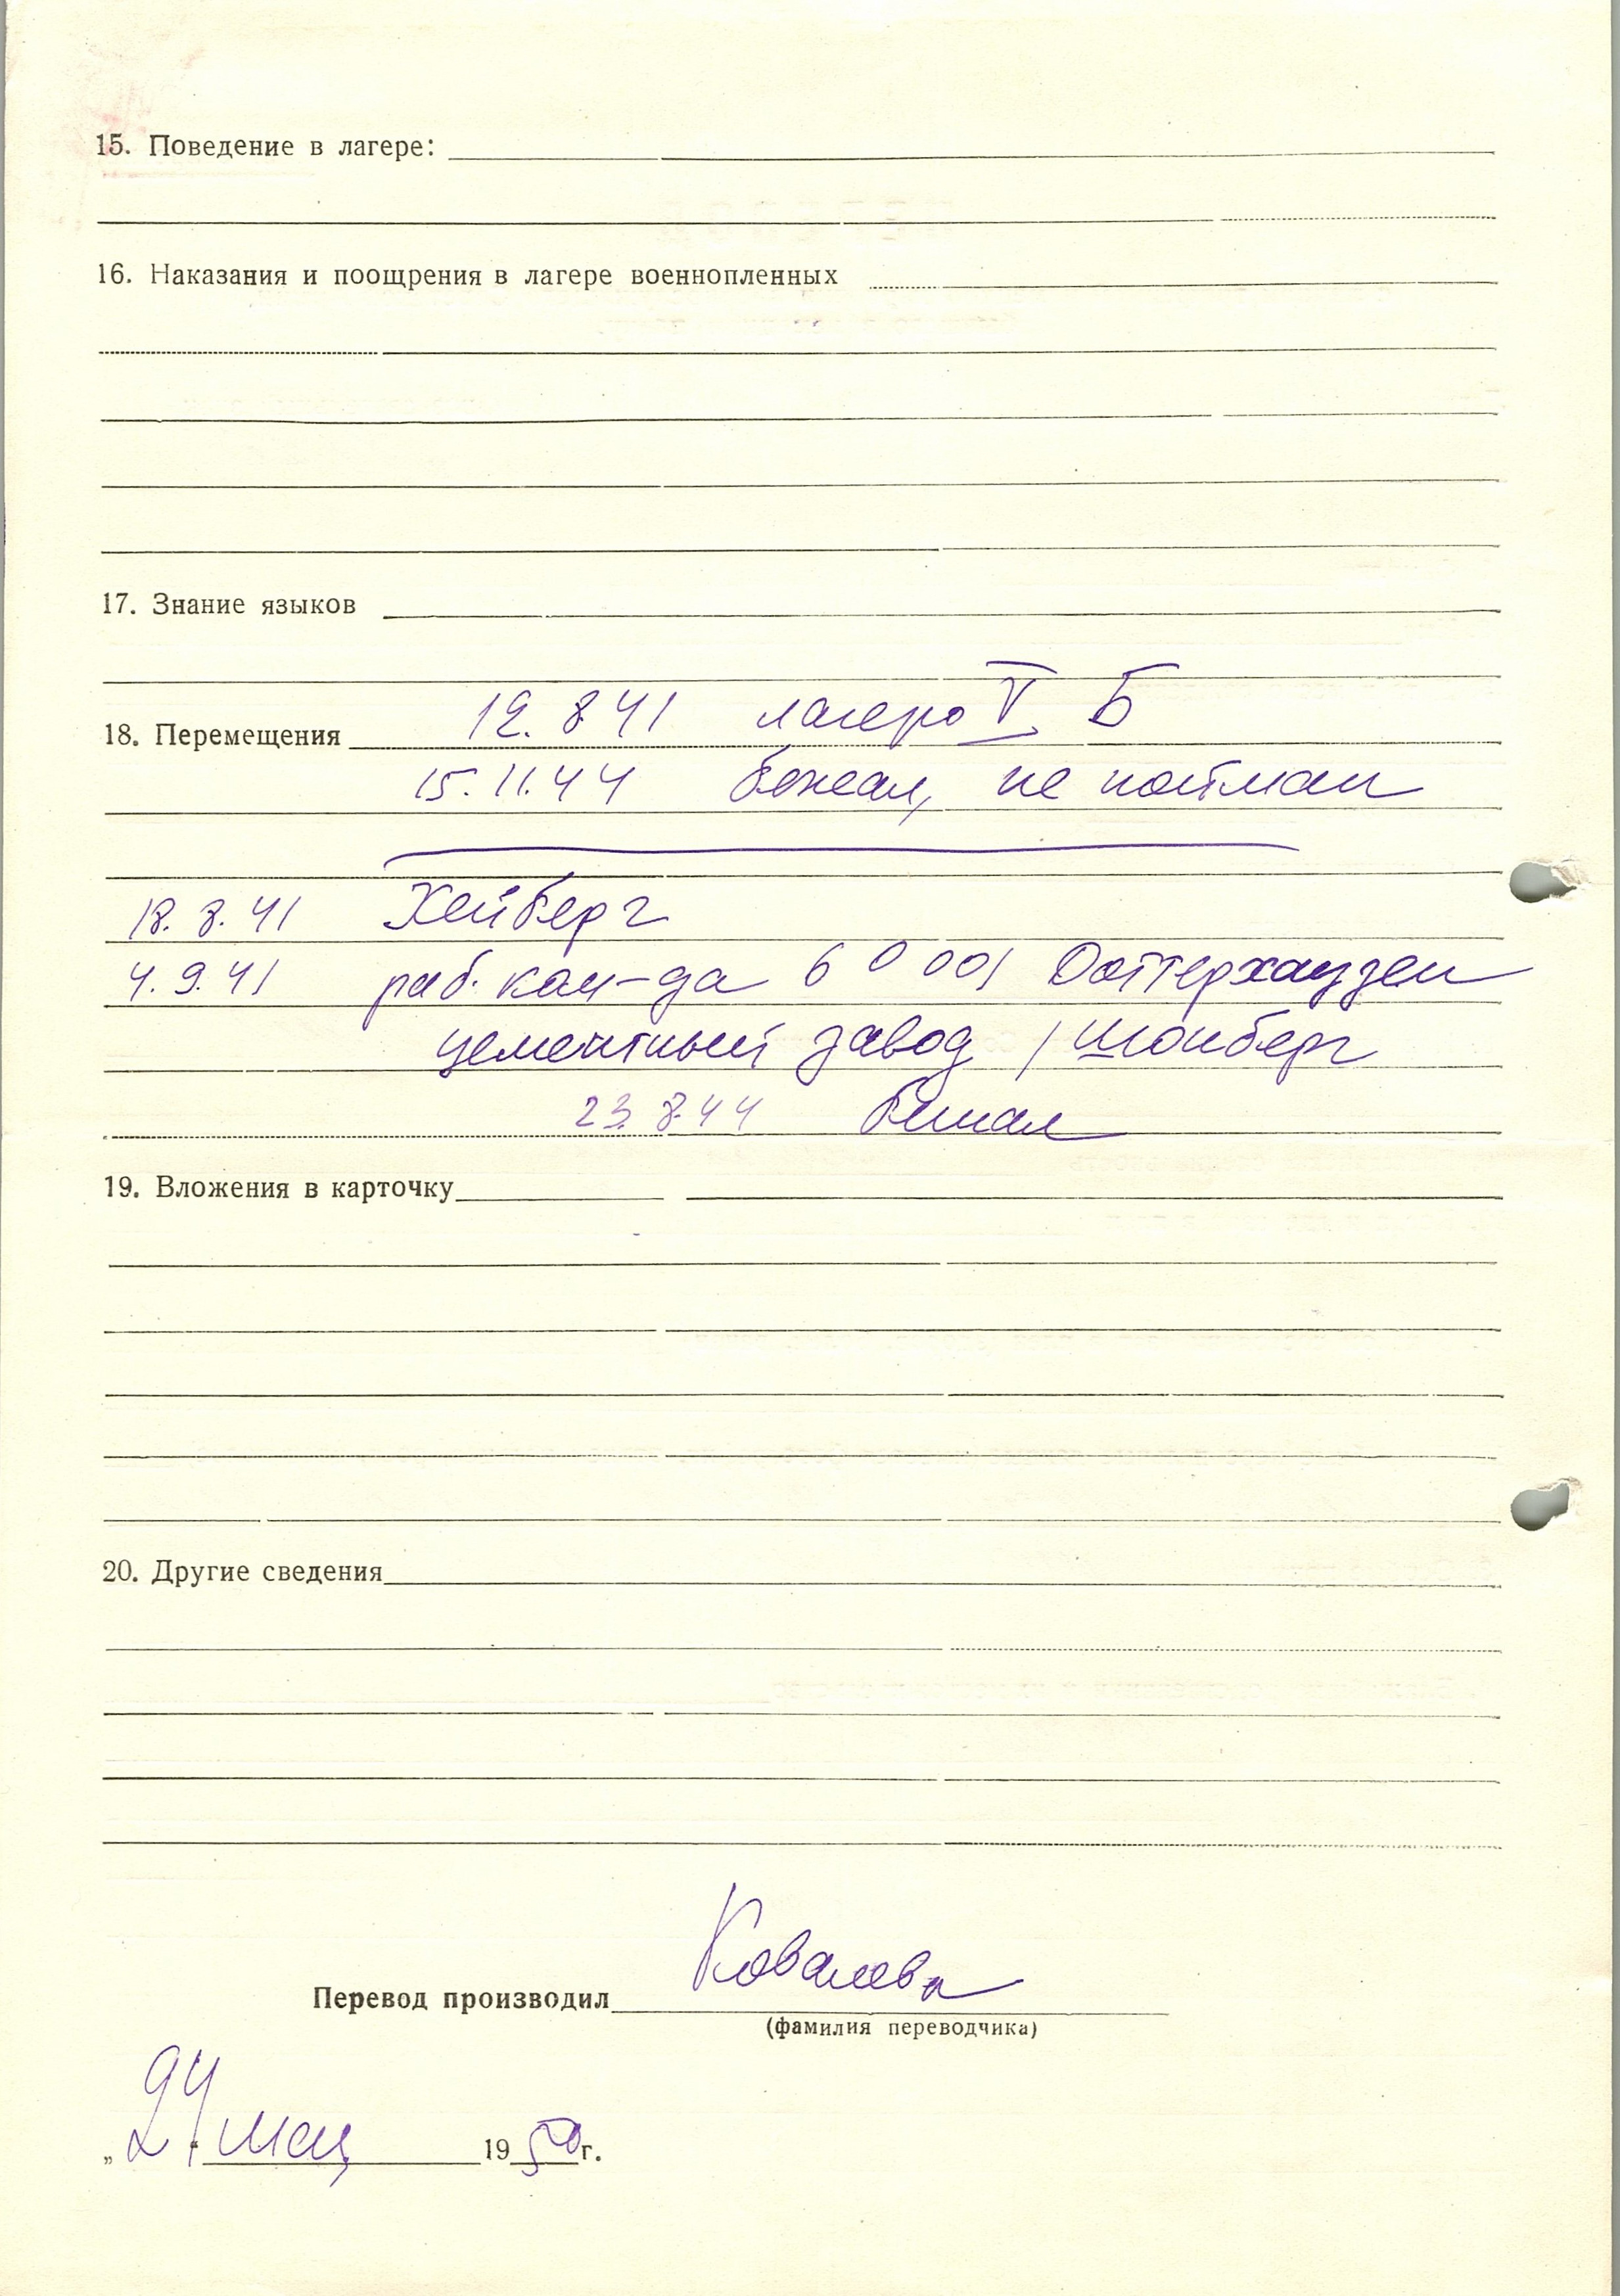 15. Поведение в лагере:
16. Наказания и поощрения в лагере военнопленных
17. Знание языков
18. Перемещения 12. 8 41 лагерь V Б
15. 11. 44 бежал, не пойман
18. 8. 41 Хейберг
4. 9. 41 раб. ком-да 6 0 001 Доттерхаузен
цементный завод / Шонберг
23. 8. 44 бежал
19. Вложения в карточку
20. Другие сведения
Перевод производил Ковалева
(фамилия переводчика)
„24" мая 1950г.